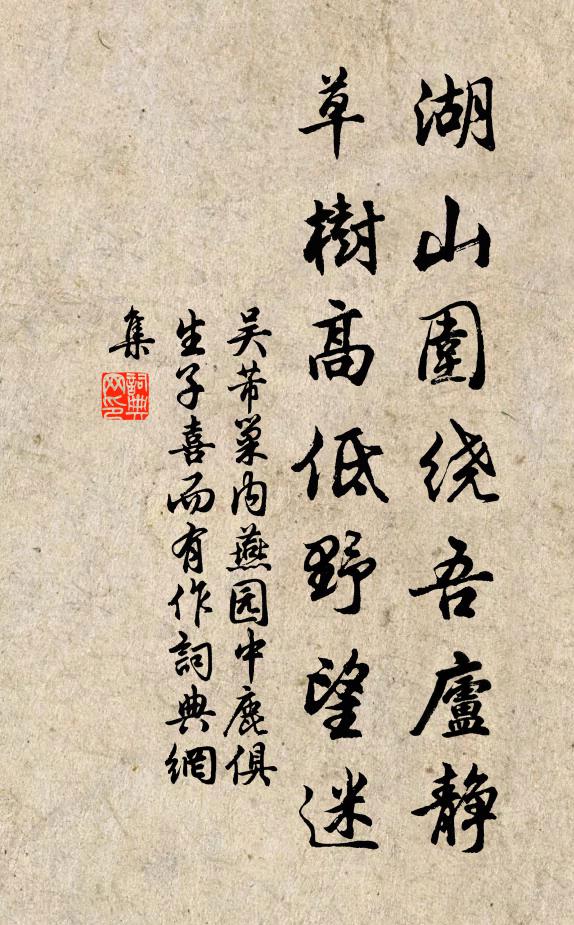 湖山圍绕吾廬静
草樹高低野望迷
吴芾巢内燕园中鹿俱
生子喜而有作詞典網
集
詞典网印